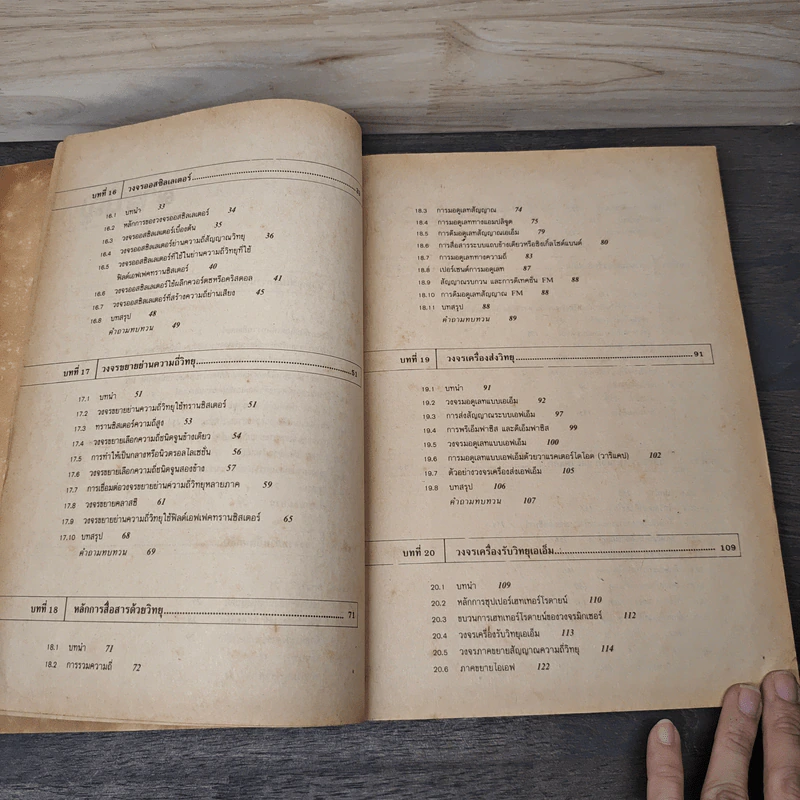 บทที่ 16 วงจรออสซิลเลเตอร์
16.1 บทนำ 33
16.2 หลักการของวงจรออสซิลเลเตอร์ 34
16.3 วงจรออสซิลเลเตอร์เบื้องต้น 35
16.4 วงจรออสซิลเลเตอร์ย่านความถี่สัญญาณวิทยุ 36
16.5 วงจรออสซิลเลเตอร์ที่ใช้ในย่านความถี่วิทยุที่ใช้
ฟิลด์เอฟเฟคทรานซิสเตอร์ 40
16.6 วงจรออสซิลเลเตอร์ใช้ผลึกควอร์ตซหรือคริสตอล 41
16.7 วงจรออสซิลเลเตอร์ที่สร้างความถี่ย่านเสียง 45
16.8 บทสรุป 48
คำถามทบทวน 49
บทที่ 17 วงจรขยายย่านความถี่วิทยุ 51
17.1 บทนำ 51
17.2 วงจรขยายย่านความถี่วิทยุใช้ทรานซิสเตอร์ 51
17.3 ทรานซิสเตอร์ความถี่สูง 53
17.4 วงจรขยายเลือกความถี่ชนิดจูนข้างเดียว 54
17.5 การทำให้เป็นกลางหรือนิวตรอลไลเซชั่น 56
17.6 วงจรขยายเลือกความถี่ชนิดจูนสองข้าง 57
17.7 การเชื่อมต่อวงจรขยายย่านความถี่วิทยุหลายภาค 59
17.8 วงจรขยายคลาสซี 61
17.9 วงจรขยายย่านความถี่วิทยุใช้ฟิลด์เอฟเฟคทรานซิสเตอร์ 65
17.10 บทสรุป 68
คำถามทบทวน 69
บทที่ 18 หลักการสื่อสารด้วยวิทยุ 71
18.1 บทนำ 71
18.2 การรวมความถี่ 72
18.3 การมอดูเลทสัญญาณ 74
18.4 การมอดูเลททางแอมปลิจูด 75
18.5 การดีมอดูเลทสัญญาณเอเอ็ม 79
18.6 การสื่อสารระบบแถบข้างเดียวหรือซิงเกิ้ลไซด์แบนด์ 80
18.7 การมอดูเลททางความถี่ 83
18.8 เปอร์เซนต์การมอดูเลท 87
18.9 สัญญาณรบกวน และการดีเทคชั่น FM 88
18.10 การดีมอดูเลทสัญญาณ FM 88
18.11 บทสรุป 88
คำถามทบทวน 89
บทที่ 19 วงจรเครื่องส่งวิทยุ 91
19.1 บทนำ 91
19.2 วงจรมอดูเลทแบบเอเอ็ม 92
19.3 การส่งสัญญาณระบบเอฟเอ็ม 97
19.4 การพรีเอ็มฟาซิส และดีเอ็มฟาซิส 99
19.5 วงจรมอดูเลทแบบเอฟเอ็ม 100
19.6 การมอดูเลทแบบเอฟเอ็มด้วยวาแรคเตอร์ไดโอด (วาริแคป) 102
19.7 ตัวอย่างวงจรเครื่องส่งเอฟเอ็ม 105
19.8 บทสรุป 106
คำถามทบทวน 107
บทที่ 20 วงจรเครื่องรับวิทยุเอเอ็ม 109
20.1 บทนำ 109
20.2 หลักการซุปเปอร์เฮทเทอร์โรดายน์ 110
20.3 ขบวนการเฮทเทอร์โรดายน์ของวงจรมิกเซอร์ 112
20.4 วงจรเครื่องรับวิทยุเอเอ็ม 113
20.5 วงจรภาคขยายสัญญาณความถี่วิทยุ 114
20.6 ภาคขยายไอเอฟ 122